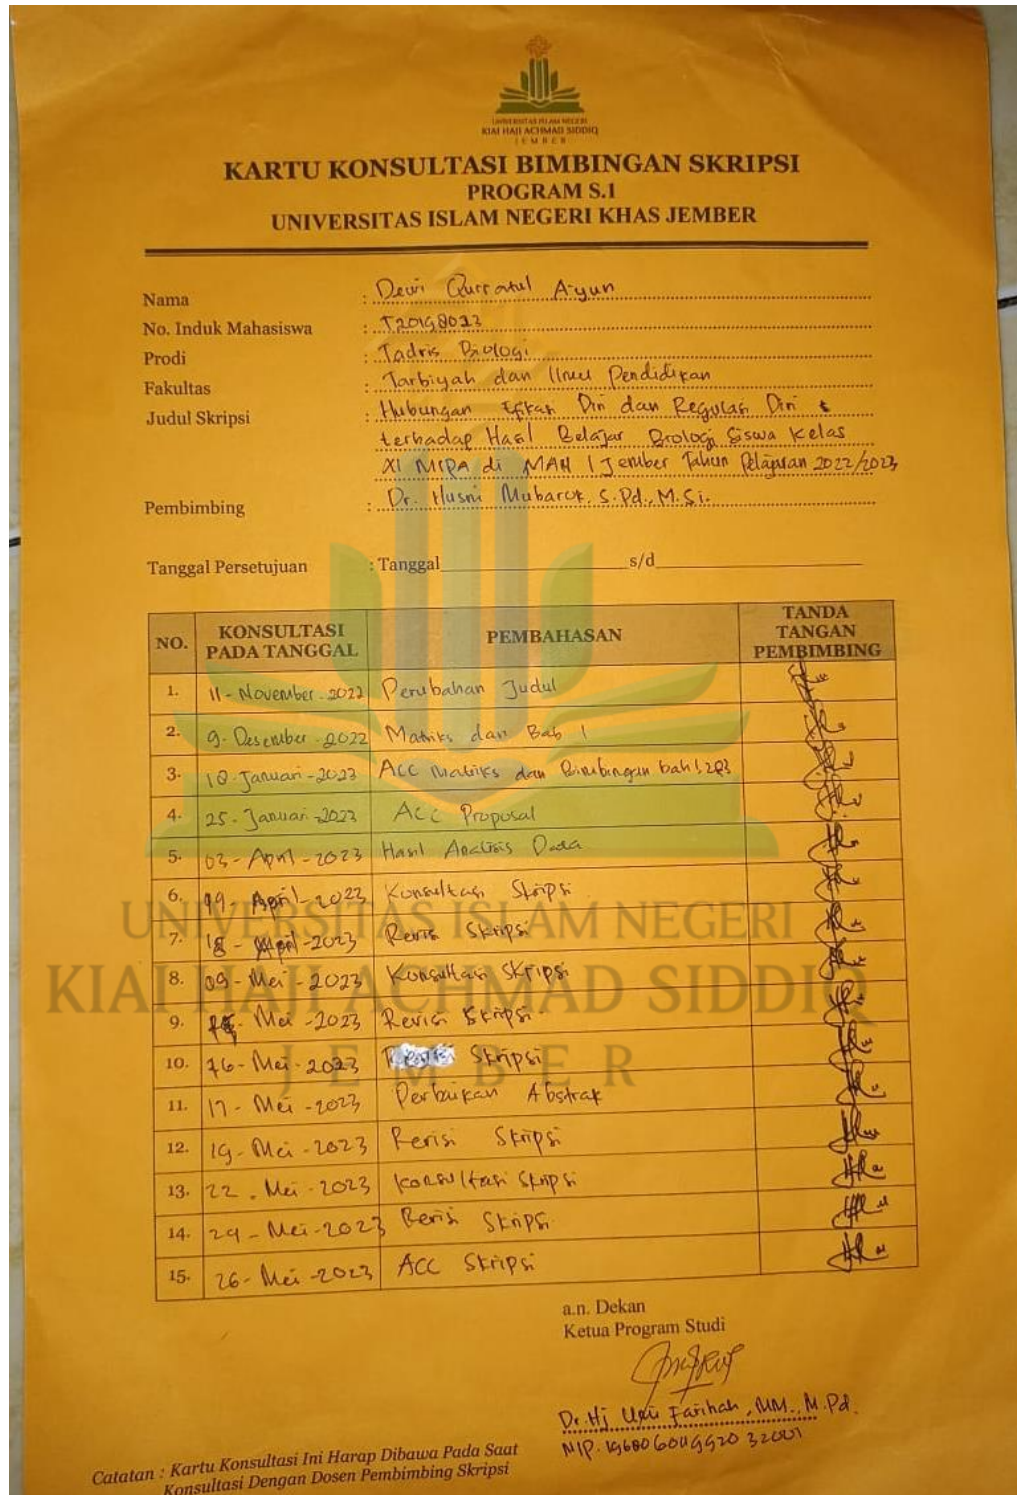 UNIVERSITAS ISLAM NEGERI
KIAI HAJI ACHMAD SIDDIQ
JEMBER
KARTU KONSULTASI BIMBINGAN SKRIPSI
PROGRAM S.1
UNIVERSITAS ISLAM NEGERI KHAS JEMBER
Nama : Dewi Qurratul A'yun
No. Induk Mahasiswa : T20198023
Prodi : Tadris Biologi
Fakultas : Tarbiyah dan Ilmu Pendidikan
Judul Skripsi : Hubungan Efikasi Diri dan Regulasi Diri
terhadap Hasil Belajar Biologi Siswa Kelas
XI MIPA di MAN 1 Jember Tahun Pelajaran 2022/2023
Pembimbing : Dr. Husni Mubarok, S.Pd., M.Si.
Tanggal Persetujuan : Tanggal s/d
NO. KONSULTASI PADA TANGGAL PEMBAHASAN TANDA TANGAN PEMBIMBING
1. 11 - November - 2022 Perubahan Judul
2. 9 - Desember - 2022 Matriks dan Bab 1
3. 18 - Januari - 2023 ACC Matriks dan Bimbingan bab 1, 2 & 3
4. 25 - Januari - 2023 ACC Proposal
5. 03 - April - 2023 Hasil Analisis Data
6. April - 2023 Konsultasi Skripsi
7. 18 - April - 2023 Revisi Skripsi
8. 09 - Mei - 2023 Konsultasi Skripsi
9. Mei - 2023 Revisi Skripsi
10. 16 - Mei - 2023 Revisi Skripsi
11. 17 - Mei - 2023 Perbaikan Abstrak
12. 19 - Mei - 2023 Revisi Skripsi
13. 22 - Mei - 2023 Konsultasi Skripsi
14. 24 - Mei - 2023 Revisi Skripsi
15. 26 - Mei - 2023 ACC Skripsi
UNIVERSITAS ISLAM NEGERI
KIAI HAJI ACHMAD SIDDIQ
JEMBER
a.n. Dekan
Ketua Program Studi
Dr. Hj Umi Farihah, MM., M.Pd.
NIP. 196806011992032001
Catatan : Kartu Konsultasi Ini Harap Dibawa Pada Saat
Konsultasi Dengan Dosen Pembimbing Skripsi